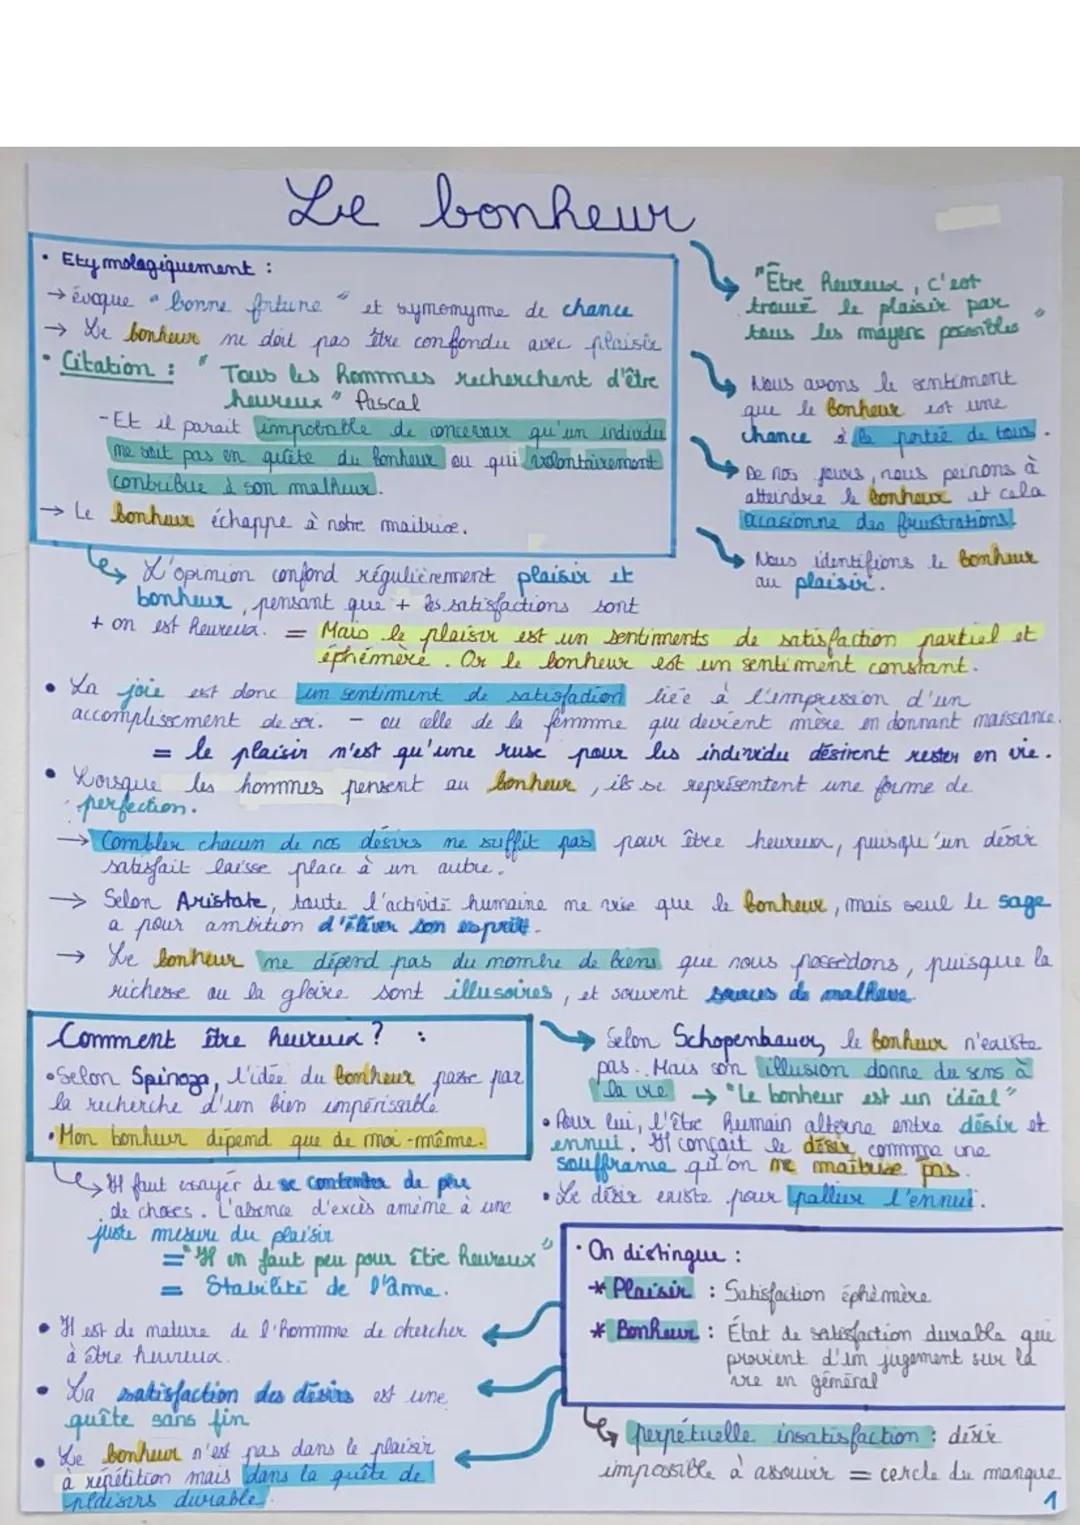 Le bonheur
• Etymologiquement :
→ évoque " bonne fortune " et symonyme de chance
→ Le bonheur ne doit pas être confondu avec plaisir
• Citation : " Tous les hommes recherchent d'être
heureux " Pascal
- Et il parait improbable de concevoir qu'un individu
ne soit pas en quête du bonheur ou qui volontairement
contribue à son malheur.
→ Le bonheur échappe à notre maitrise.
"Être heureux, c'est
trouvé le plaisir par
tous les moyens possibles "
Nous avons le sentiment
que le bonheur est une
chance à la portée de tous.
De nos jours, nous peinons à
atteindre le bonheur et cela
occasionne des frustrations.
Nous identifions le bonheur
au plaisir.
L'opinion confond régulièrement plaisir et
bonheur, pensant que + les satisfactions sont
+ on est heureux. = Mais le plaisir est un sentiments de satisfaction partiel et
éphémère. Or le bonheur est un sentiment constant.
• La joie est donc un sentiment de satisfaction liée à l'impression d'un
accomplissement de soi. - ou celle de la femme qui devient mère en donnant naissance.
= le plaisir n'est qu'une ruse pour les individu désirent rester en vie.
• Lorsque les hommes pensent au bonheur, ils se représentent une forme de
perfection.
→ Combler chacun de nos désirs ne suffit pas pour être heureux, puisqu'un désir
satisfait laisse place à un autre.
→ Selon Aristote, toute l'activité humaine ne vise que le bonheur, mais seul le sage
a pour ambition d'élever son esprit.
→ Le bonheur ne dépend pas du nombre de biens que nous possédons, puisque la
richesse ou la gloire sont illusoires, et souvent sources de malheur.
Comment être heureux ? :
• Selon Spinoza, l'idée du bonheur passe par
la recherche d'un bien impérissable
• Mon bonheur dépend que de moi-même.
Il faut essayer de se contenter de peu
de choses. L'absence d'excès amène à une
juste mesure du plaisir
= "Il en faut peu pour être heureux"
= Stabilité de l'âme.
Selon Schopenhauer, le bonheur n'existe
pas. Mais son illusion donne du sens à
la vie → "Le bonheur est un idéal"
• Pour lui, l'être humain alterne entre désir et
ennui. Il conçoit le désir comme une
souffrance qu'on ne maitrise pas.
• Le désir existe pour pallier l'ennui.
• On distingue :
* Plaisir : Satisfaction éphémère
* Bonheur : État de satisfaction durable qui
provient d'un jugement sur la
vie en général
perpétuelle insatisfaction : désir
impossible à assouvir = cercle du manque
• Il est de nature de l'homme de chercher
à être heureux.
• La satisfaction des désirs est une
quête sans fin
• Le bonheur n'est pas dans le plaisir
à répétition mais dans la quête de
plaisirs durable.
1